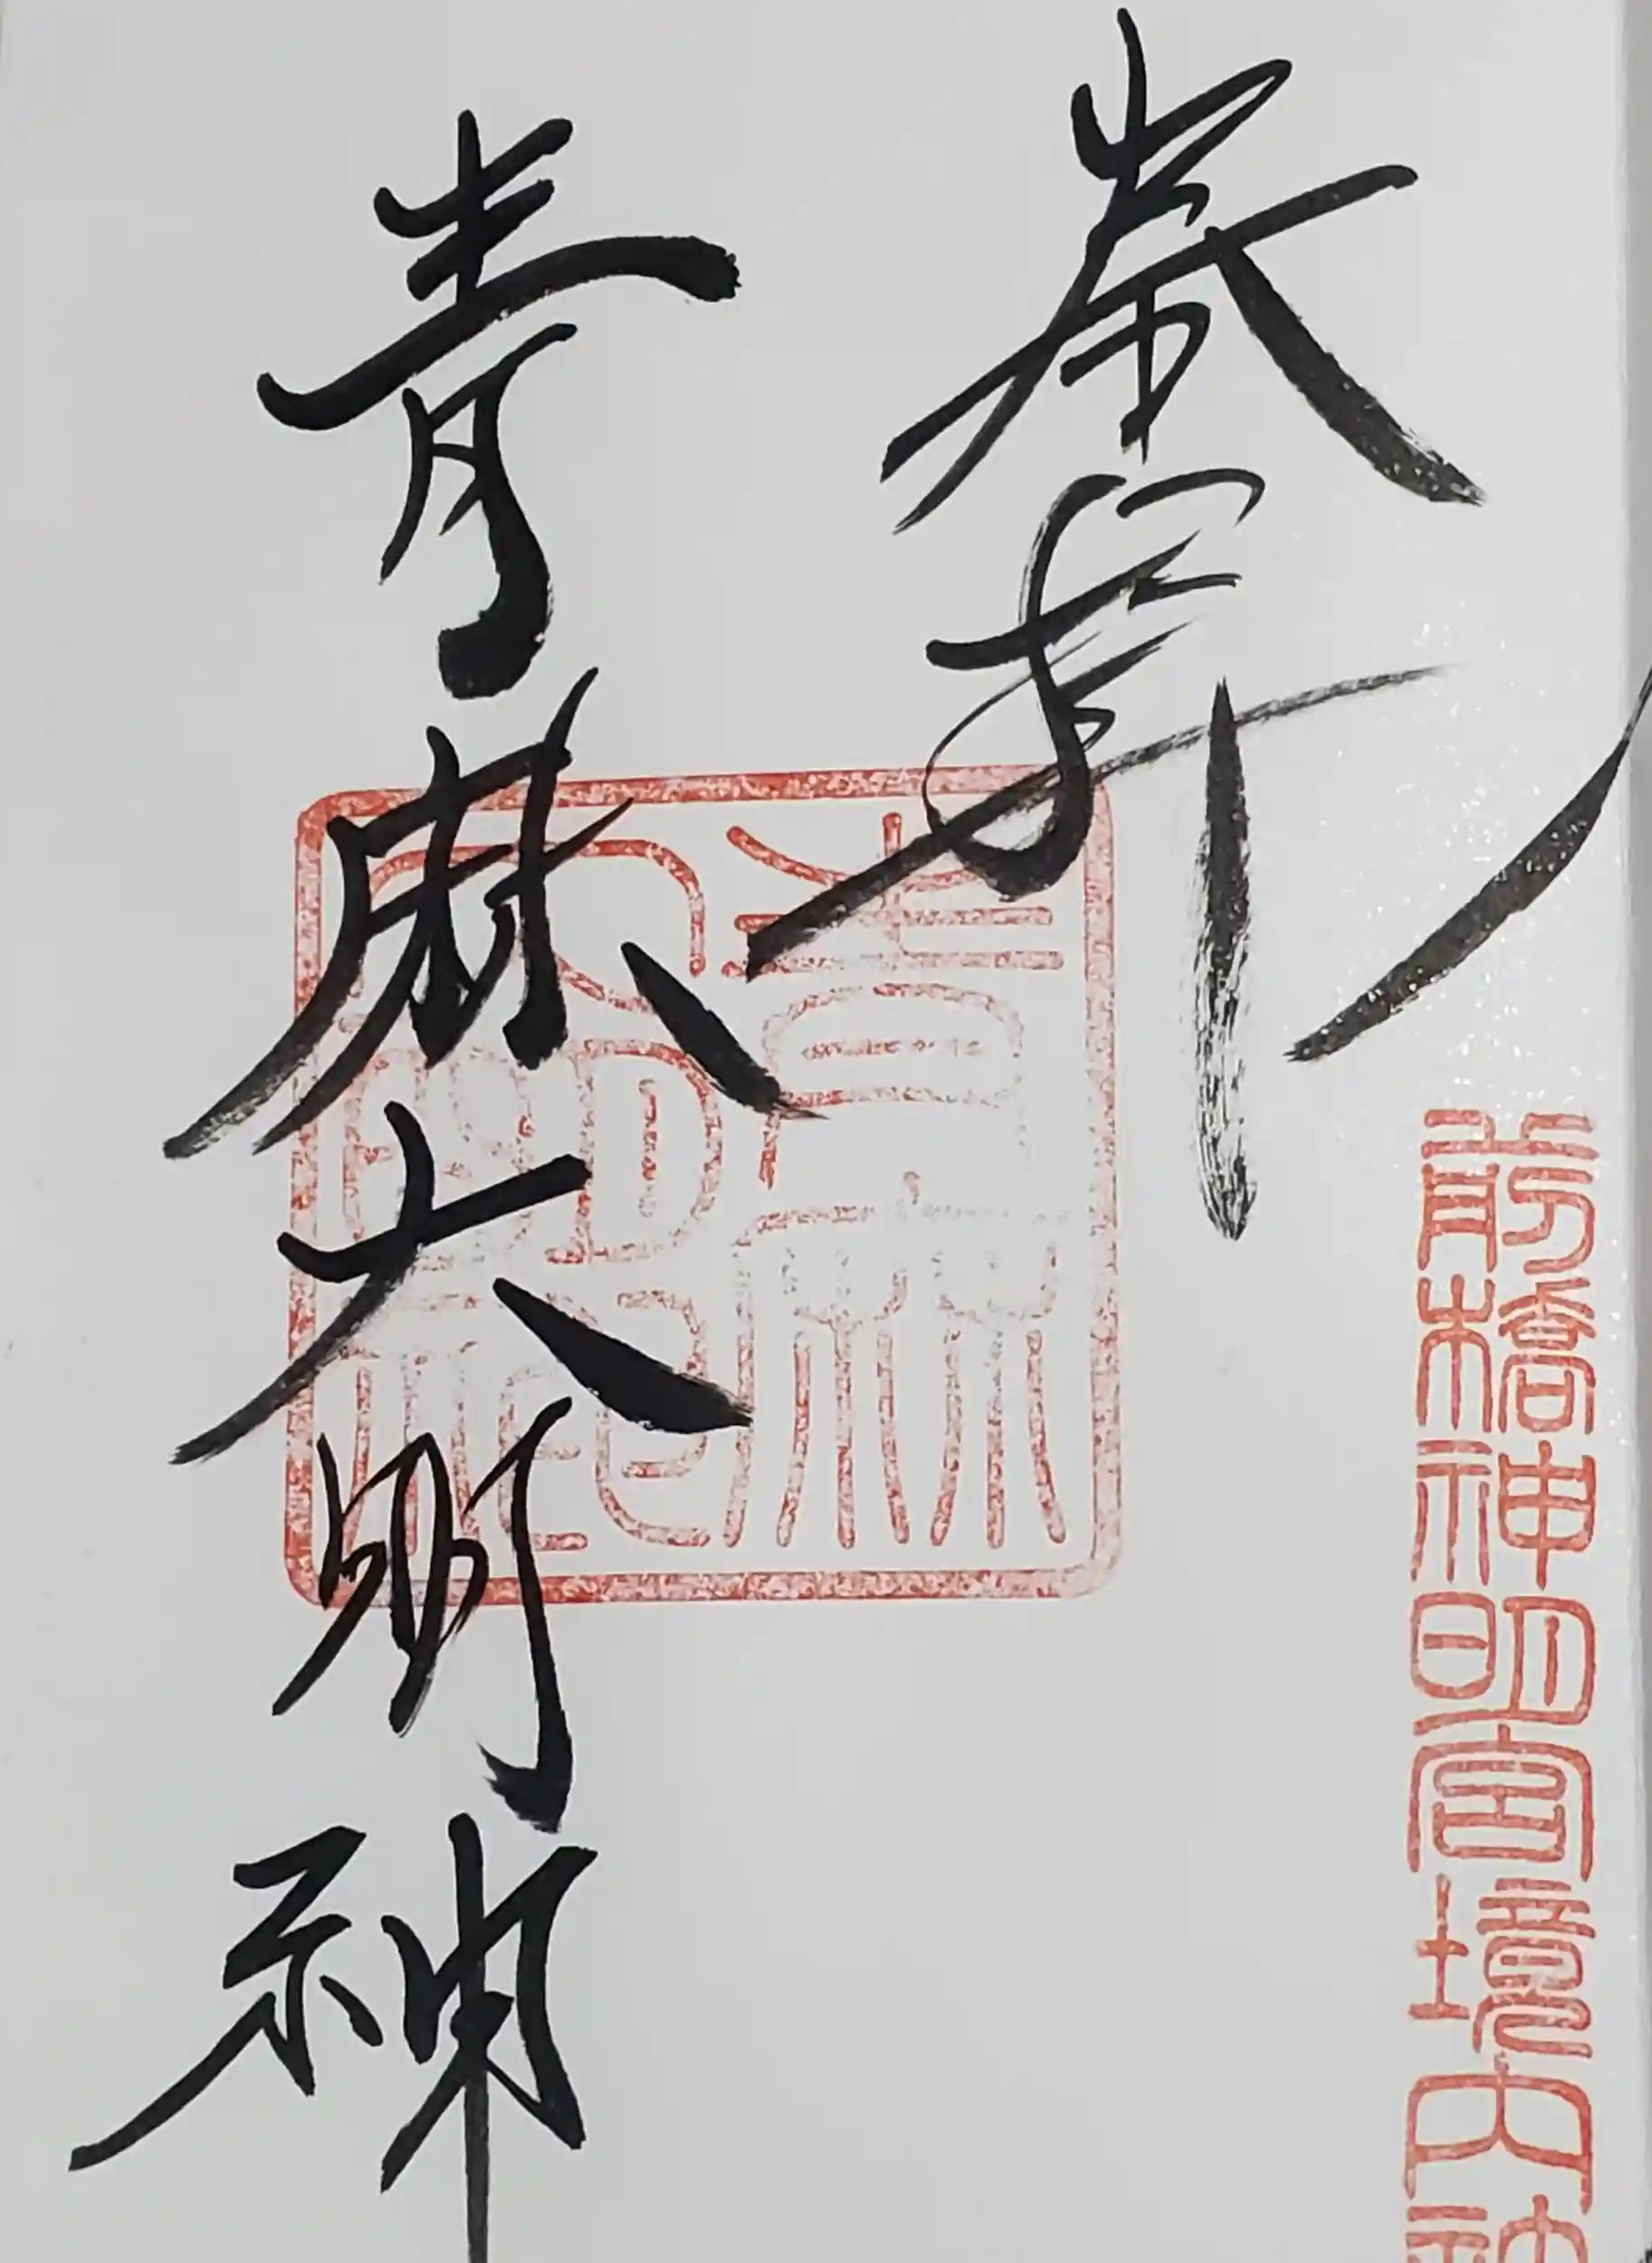 前橋神明宮境内
奉拝
青麻
大明神
青麻大明神